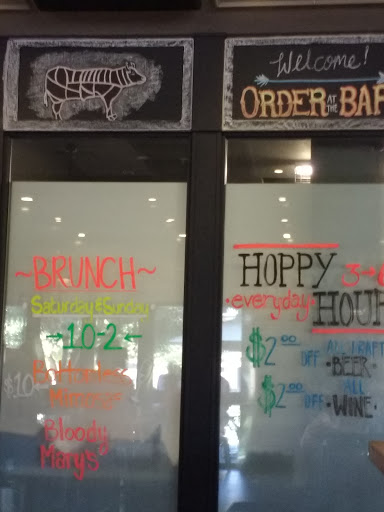 Welcome!
ORDER AT THE BAR
~BRUNCH~
Saturday & Sunday
→10-2←
$10
Bottomless
Mimosas
Bloody
Marys
HOPPY 3-6
•everyday• HOUR
$2.00 OFF ALL DRAFT
•BEER•
$2.00 OFF ALL
•WINE•